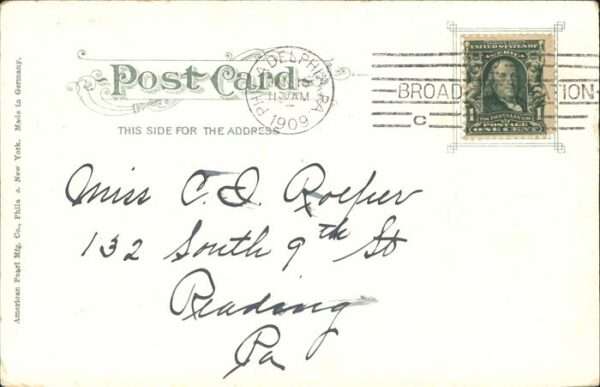 Post Card
THIS SIDE FOR THE ADDRESS
PHILADELPHIA, PA
1130 AM
1909
BROAD STATION
C
UNITED STATES OF AMERICA
1 1
POSTAGE
ONE CENT
Miss C. I.
132 South 9th St
Reading
Pa
American Pearl Mfg. Co., Phila & New York. Made in Germany.